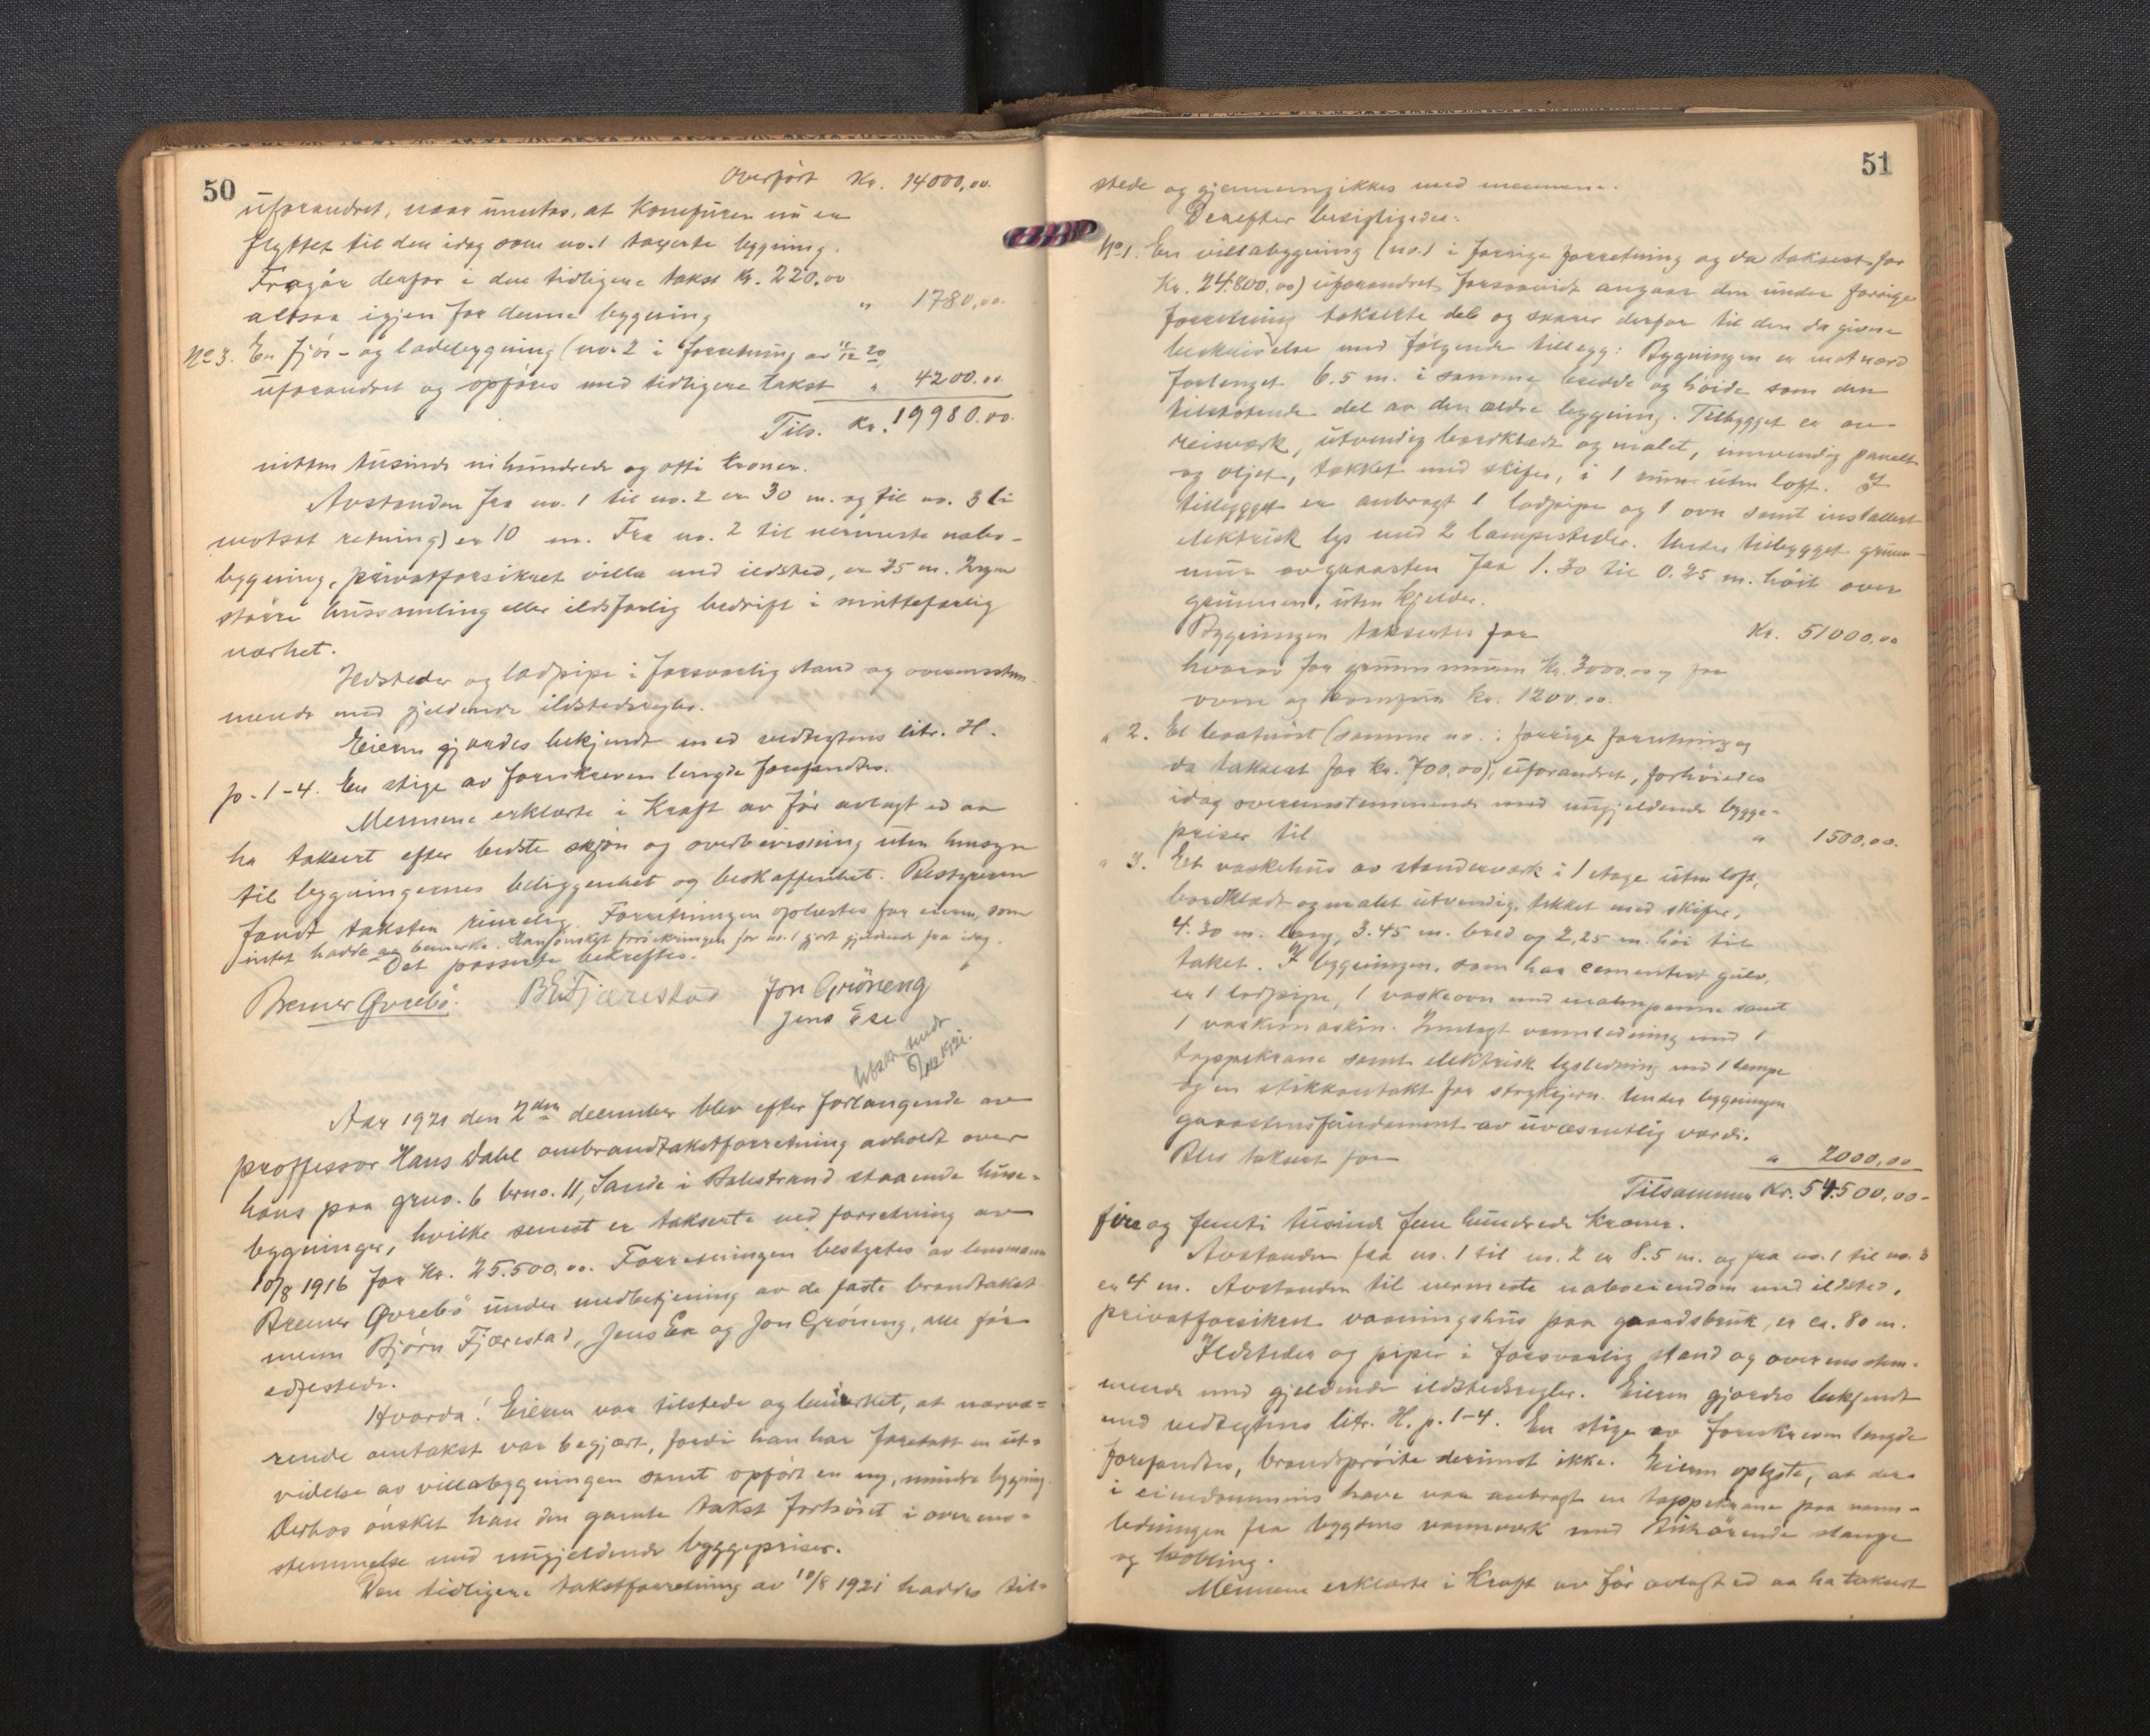 50
Overført Kr. 14000,00.
uforandret, naar unntas, at komfuren nu er
flyttet til den idag som no. 1 taxerte bygning.
Fragår derfor i den tidligere takst Kr. 220,00
altsaa igjen for denne bygning " 1780,00.
No 3. En fjøs- og ladebygning (no. 2 i forretning av 11/12 20,
uforandret og opføres med tidligere takst " 4200.00
Tils. Kr. 19980.00.
nitten tusinde nihundrede og otti kroner.
Avstanden fra no. 1 til no. 2 er 30 m. og til no. 3 (i
motsat retning) er 10 m. Fra no. 2 til nermeste nabo-
bygning, privatforsikret villa med ildsted, er 25 m. Ingen
større hussamling eller ildsfarlig bedrift i smittefarlig
nærhet.
Ildsteder og ladpipe i forsvarlig stand og overensstem-
mende med gjeldende ildstedsregler.
Eieren gjordes bekjendt med vedtegtens litr. H.
p. 1-4. En stige av foreskreven lengde forefandtes.
Mennene erklærte i Kraft av før avlagt ed aa
ha taksert efter bedste skjøn og overbevisning uten hensyn
til bygningernes beliggenhet og beskaffenhet. Bestyreren
fandt taksten rimelig. Forretningen oplæstes for eieren, som
intet hadde aa bemerke. Han ønsket forsikringen for no. 1 gjort gjeldende fra idag.
Det passerte bekreftes.
Bremer Øvrebø. B E Fjærestad Jon Grøneng
Jens Ese
Utskr. sendt
8/12 1921.
Aar 1921 den 2den december blev efter forlangende av
proffessor Hans Dahl ombrandtakstforretning avholdt over
hans paa grno. 6 brno. 11, Sande i Balestrand staaende huse-
bygninger, hvilke senest er takserte ved forretning av
10/8 1916 for Kr. 25.500,00. Forretningen bestyrtes av lensmann
Bremer Øvrebø under medbetjening av de faste brandtakst
menn Bjørn Fjærestad, Jens Ese og Jon Grøneng, alle før
edfestede.
Hvorda! Eieren var tilstede og bemerket, at nærvæ-
rende omtakst var begjært, fordi han har foretatt en ut-
videlse av villabygningen samt opført en ny, mindre bygning.
Derhos ønsket han den gamle takst forhøiet i overens-
stemmelse med nugjeldende byggepriser.
Den tidligere takstforretning av 10/8 1921 haddes til-
51
stede og gjennemgikkes med mennene.
Derefter besigtigedes:
No 1. En villabygning (no. 1 i forrige forretning og da taksert for
Kr. 24.800,00) uforandret forsaavidt angaar den under forrige
forretning takserte del og svarer derfor til den da givne
beskrivelse med følgende tillegg: Bygningen er mot nord
forlenget 6.5 m. i samme bredde og høide som den
tilstøtende del av den ældre bygning. Tilbygget er av
reisverk, utvendig bordklædt og malet, innvendig panelt
og oljet, takket med skifer, i 1 rum uten loft. I
tilbygget er anbragt 1 ladpipe og 1 ovn samt installert
elektrisk lys med 2 lampesteder. Under tilbygget grunn-
mur av graasten fra 1.30 til 0.25 m. høit over
grunnen, uten kjelder.
Bygningen takseres for Kr. 51000,00
hvorav for grunnmuren Kr. 3000.00 og for
ovne og komfyr Kr. 1200.00.
" 2. Et baatnøst (samme no. i forrige forretning og
da taksert for Kr. 700,00), uforandret, forhøiedes
idag overensstemmende med nugjeldende bygge-
priser til " 1500,00.
" 3. Et vaskehus av standerverk i 1 etage uten loft,
bordklædt og malet utvendig, tekket med skifer,
4.30 m. lang, 3.45 m. bred og 2,25 m. høi til
taket. I bygningen, som har cementert gulv,
er 1 ladpipe, 1 vaskeovn med malmpanne samt
1 vaskemaskin. Innlagt vannledning med 1
tappekrane samt elektrisk lysledning med 1 lampe
og en stikkontakt for strykejern. Under bygningen
graastensfundament av uvæsentlig værdi.
Blev taksert for " 2000,00
Tilsammen Kr. 54.500,00-
fire og femti tusind fem hundrede kroner.
Avstanden fra no. 1 til no. 2 er 8.5 m. og fra no. 1 til no. 3
er 4 m. Avstanden til nermeste naboeiendom med ildsted,
privatforsikret vaaningshus paa gaardsbruk, er ca. 80 m.
Ildsteder og piper i forsvarlig stand og overensstem-
mende med gjeldende ildstedsregler. Eieren gjordes bekjendt
med vedtegtens litr. H. p. 1-4. En stige av foreskreven lengde
forefandtes, brandsprøite derimot ikke. Eieren oplyste, at der
i eiendommens have var anbragt en tappekrane paa vann-
ledningen fra bygdens vannverk med tilhørende slange
og kobling.
Mennene erklærte i Kraft av før avlagt ed aa ha taksert